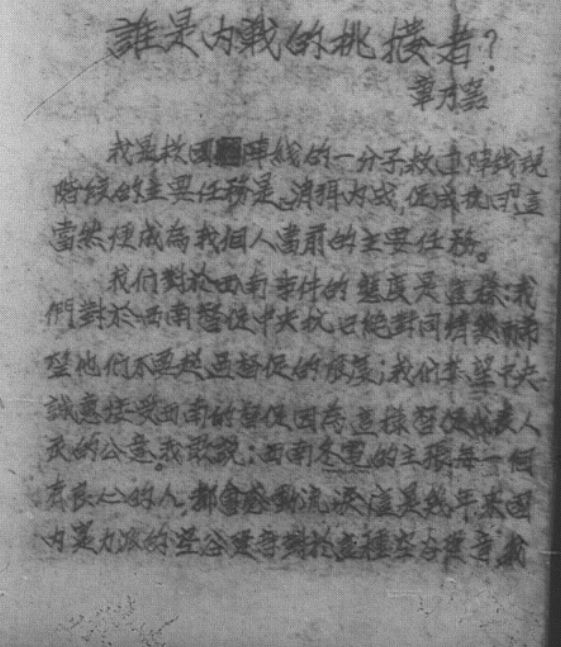 誰是内戰的挑撥者?
章乃器
我是救国陣綫的一分子,救国陣线現
階段的主要任務是消弭内战,促成抗日,這
當然便成為我個人當前的主要任務。
我们對於西南事件的態度是這樣:我
們對於西南督促中央抗日絕對同情,然而希
望他们不要超過督促的限度;我们希望中央
誠意接受西南的督促,因為這樣督促代表人
民的公意。我敢説:西南的主張每一個
有良心的人,都會感動流淚,這是幾年来国
内实力派的空谷足音,對於這種空谷足音,我